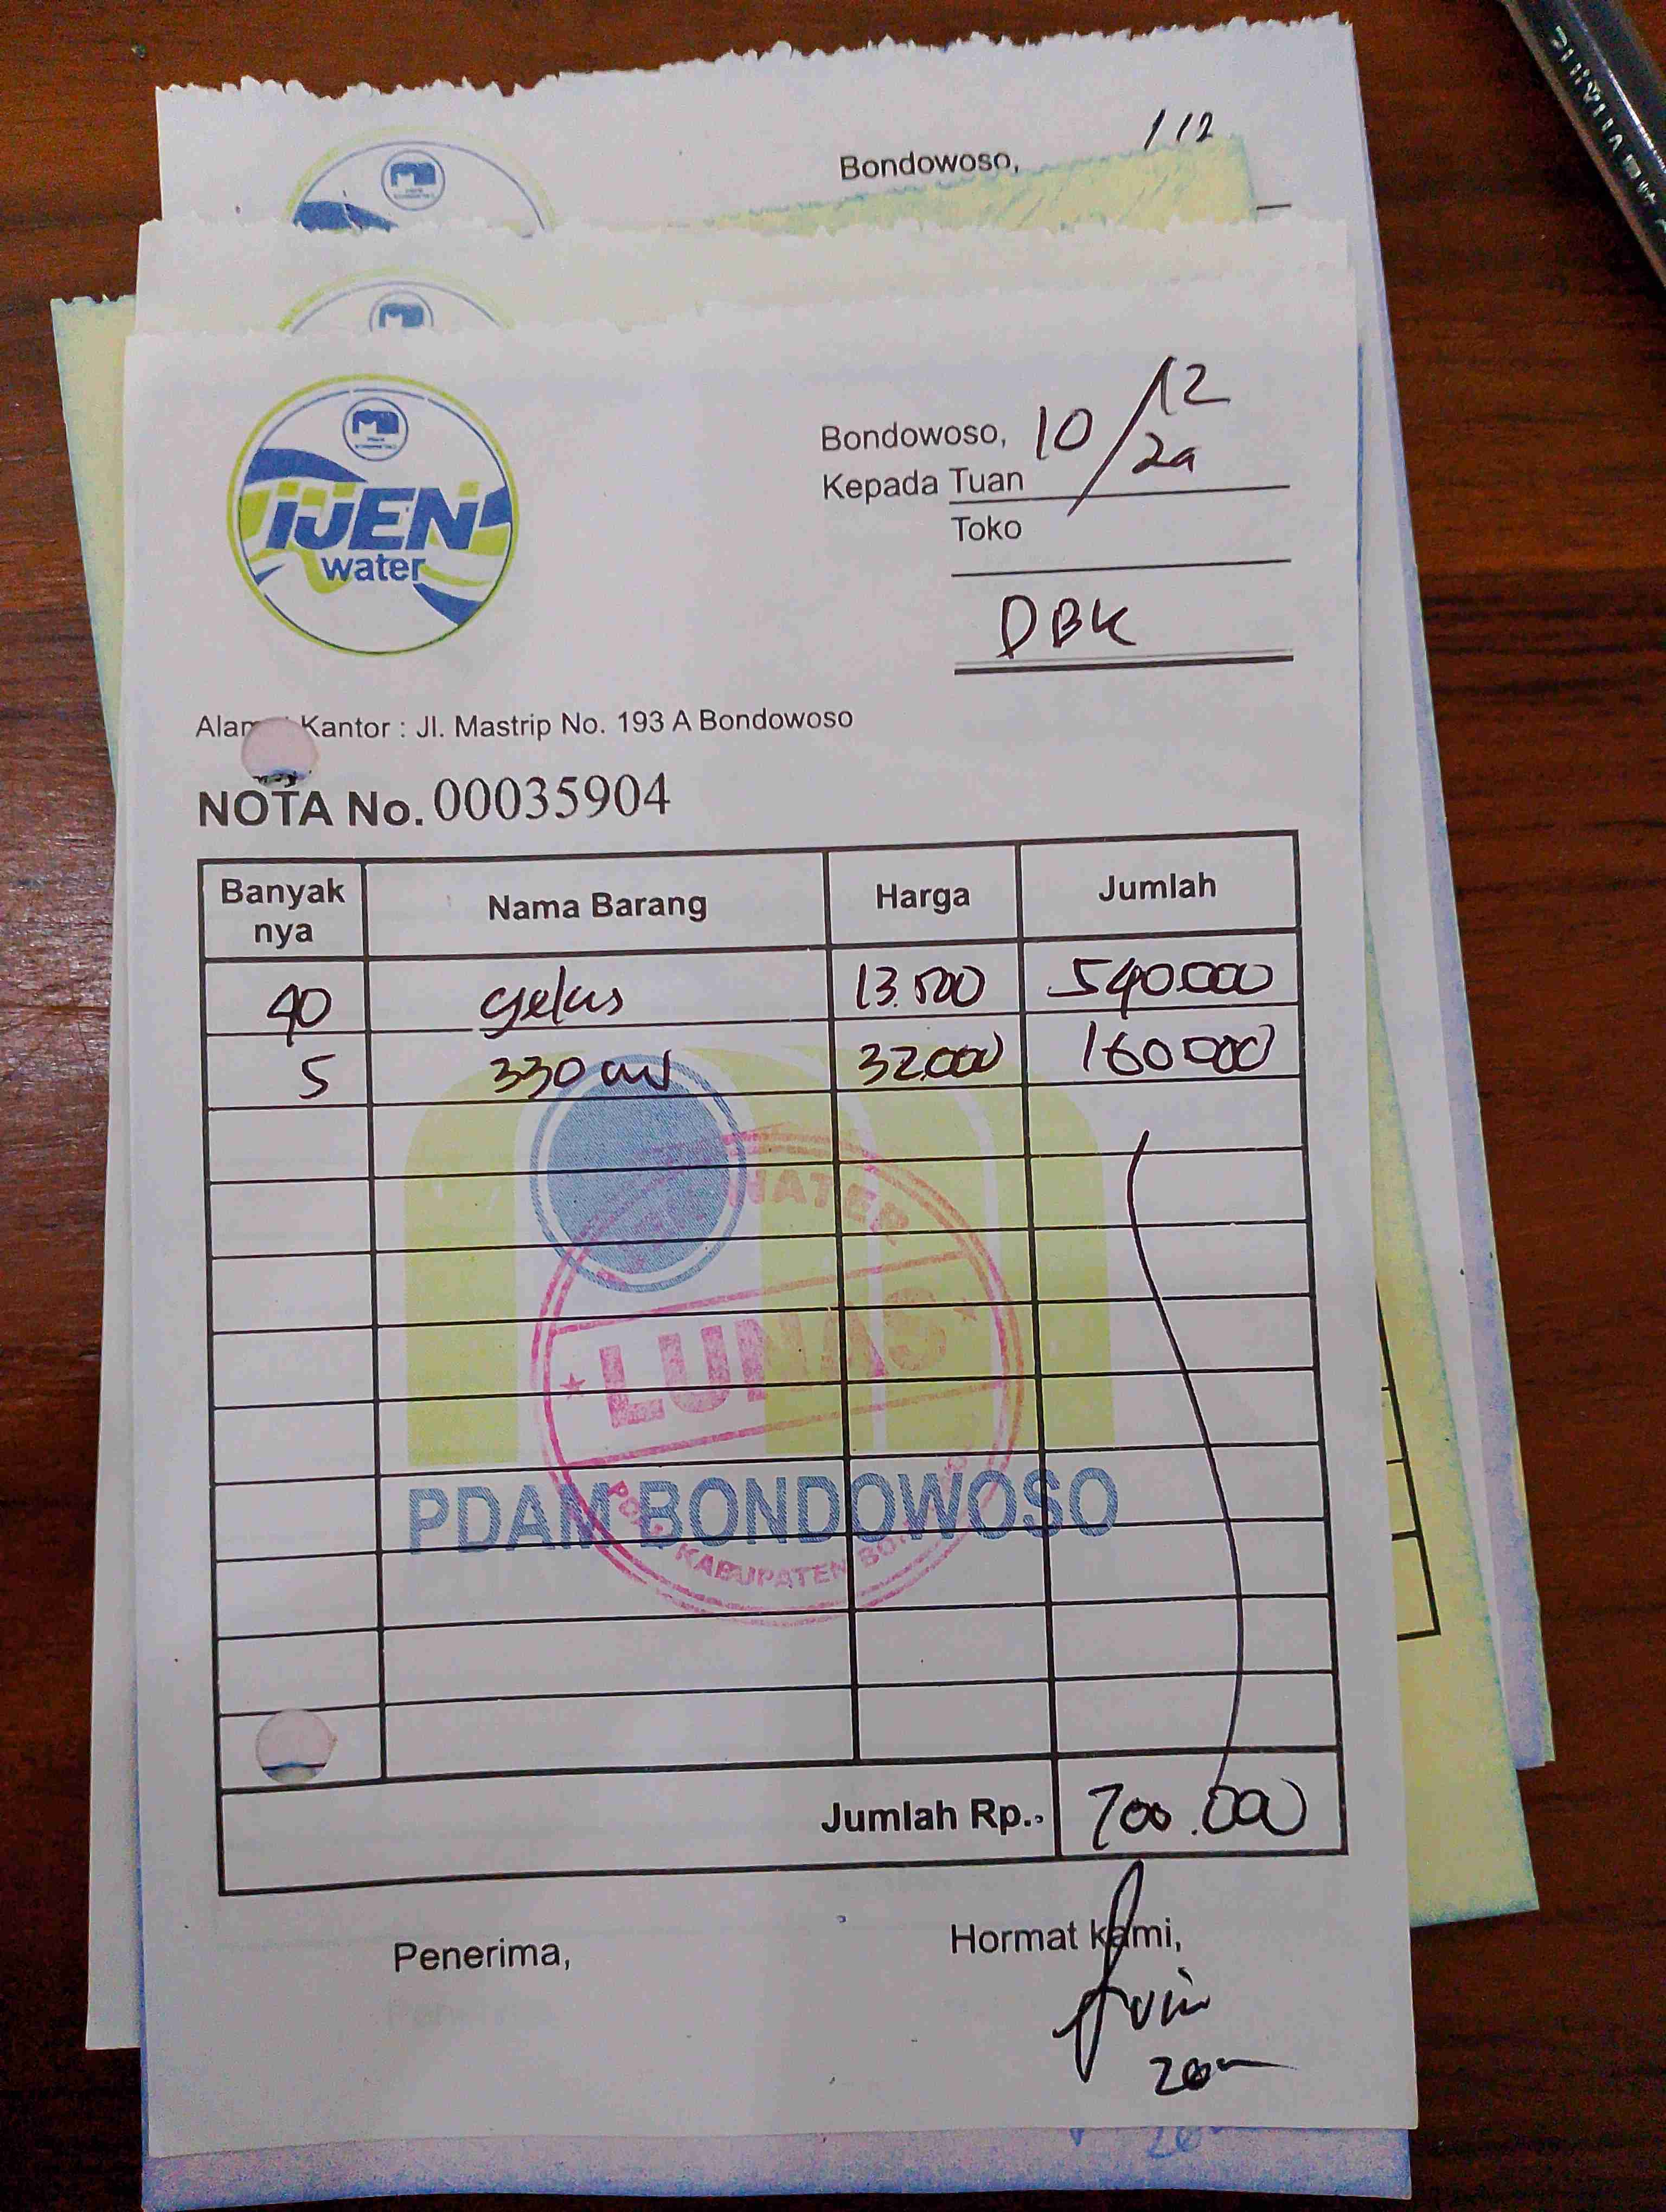 Bondowoso, /12
iJEN
water
Bondowoso, 10/12
24
Kepada Tuan
Toko
DBK
Kantor : Jl. Mastrip No. 193 A Bondowoso
NOTA No. 00035904
Banyak nya Nama Barang Harga Jumlah
40 gelas 13.500 540.000
5 330 ml 32.000 160.000
WATER
LUNAS
PDAM BONDOWOSO
KABUPATEN
Jumlah Rp. 700.000
Penerima,
Hormat kami,